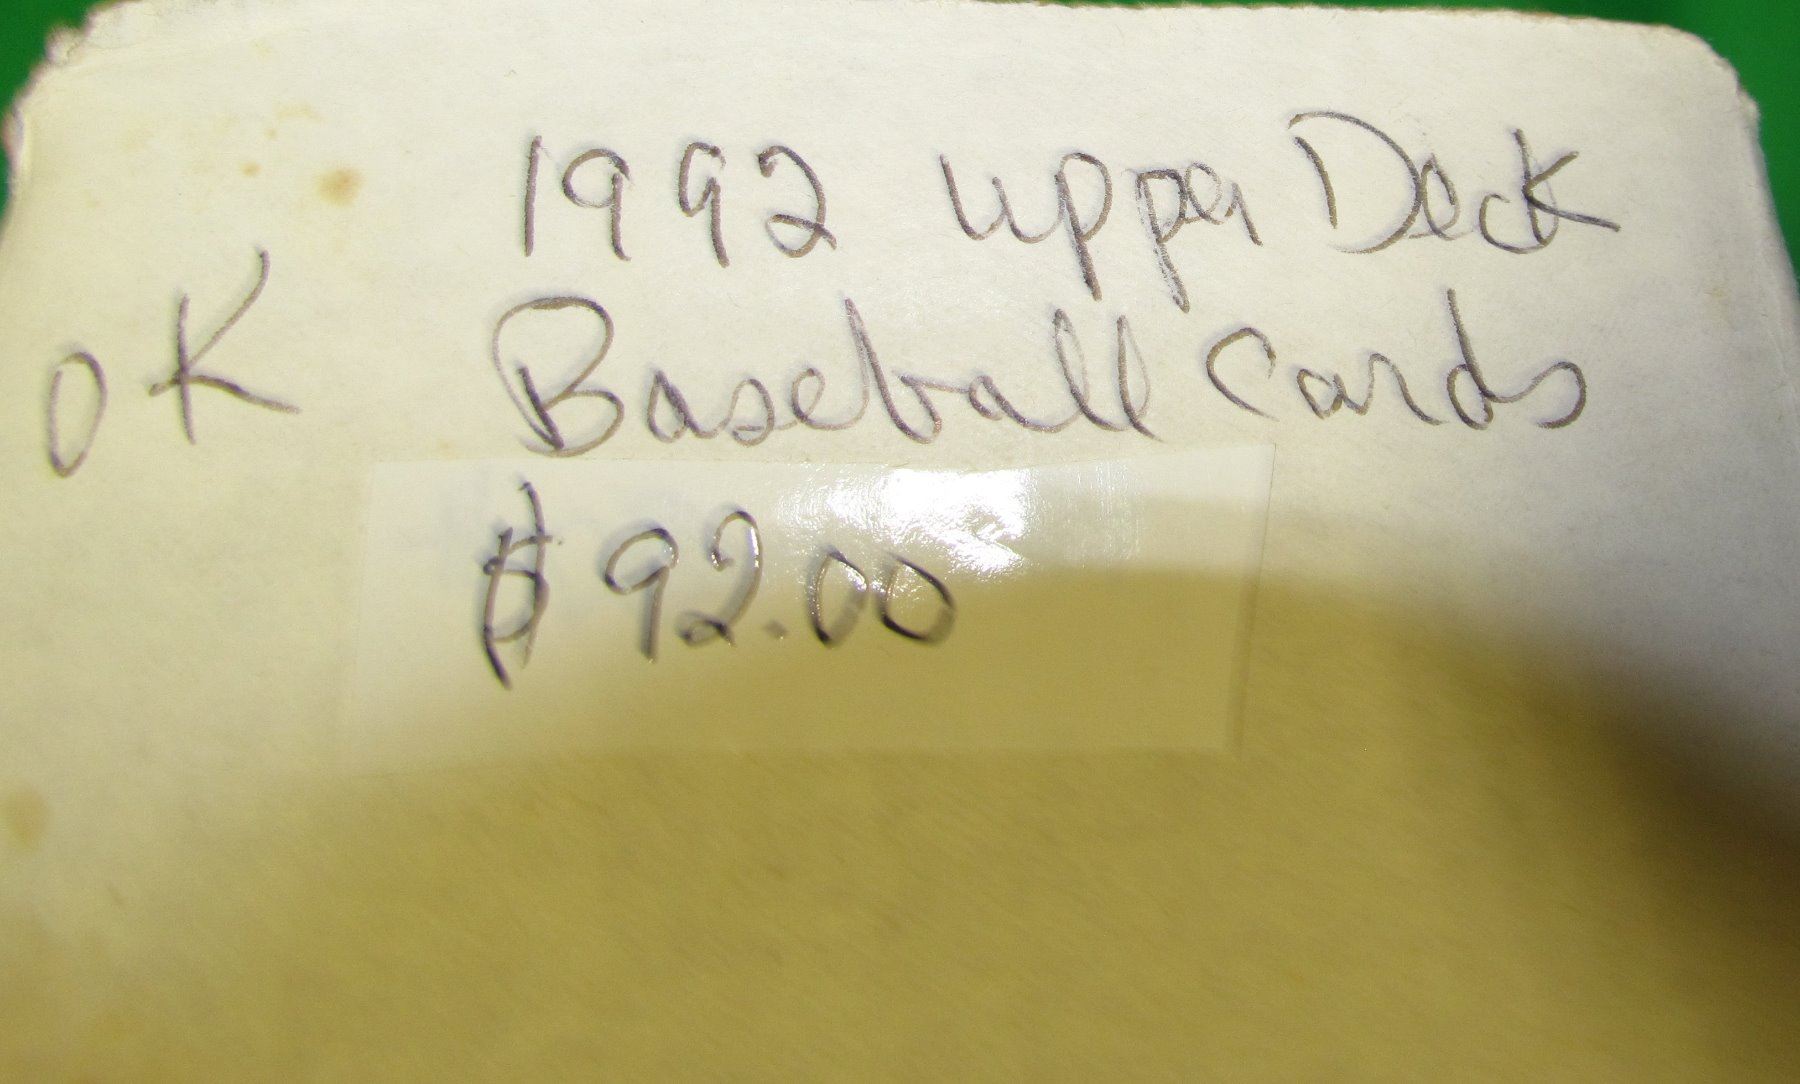 1992 upper Deck
OK
Baseball Cards
$92.00